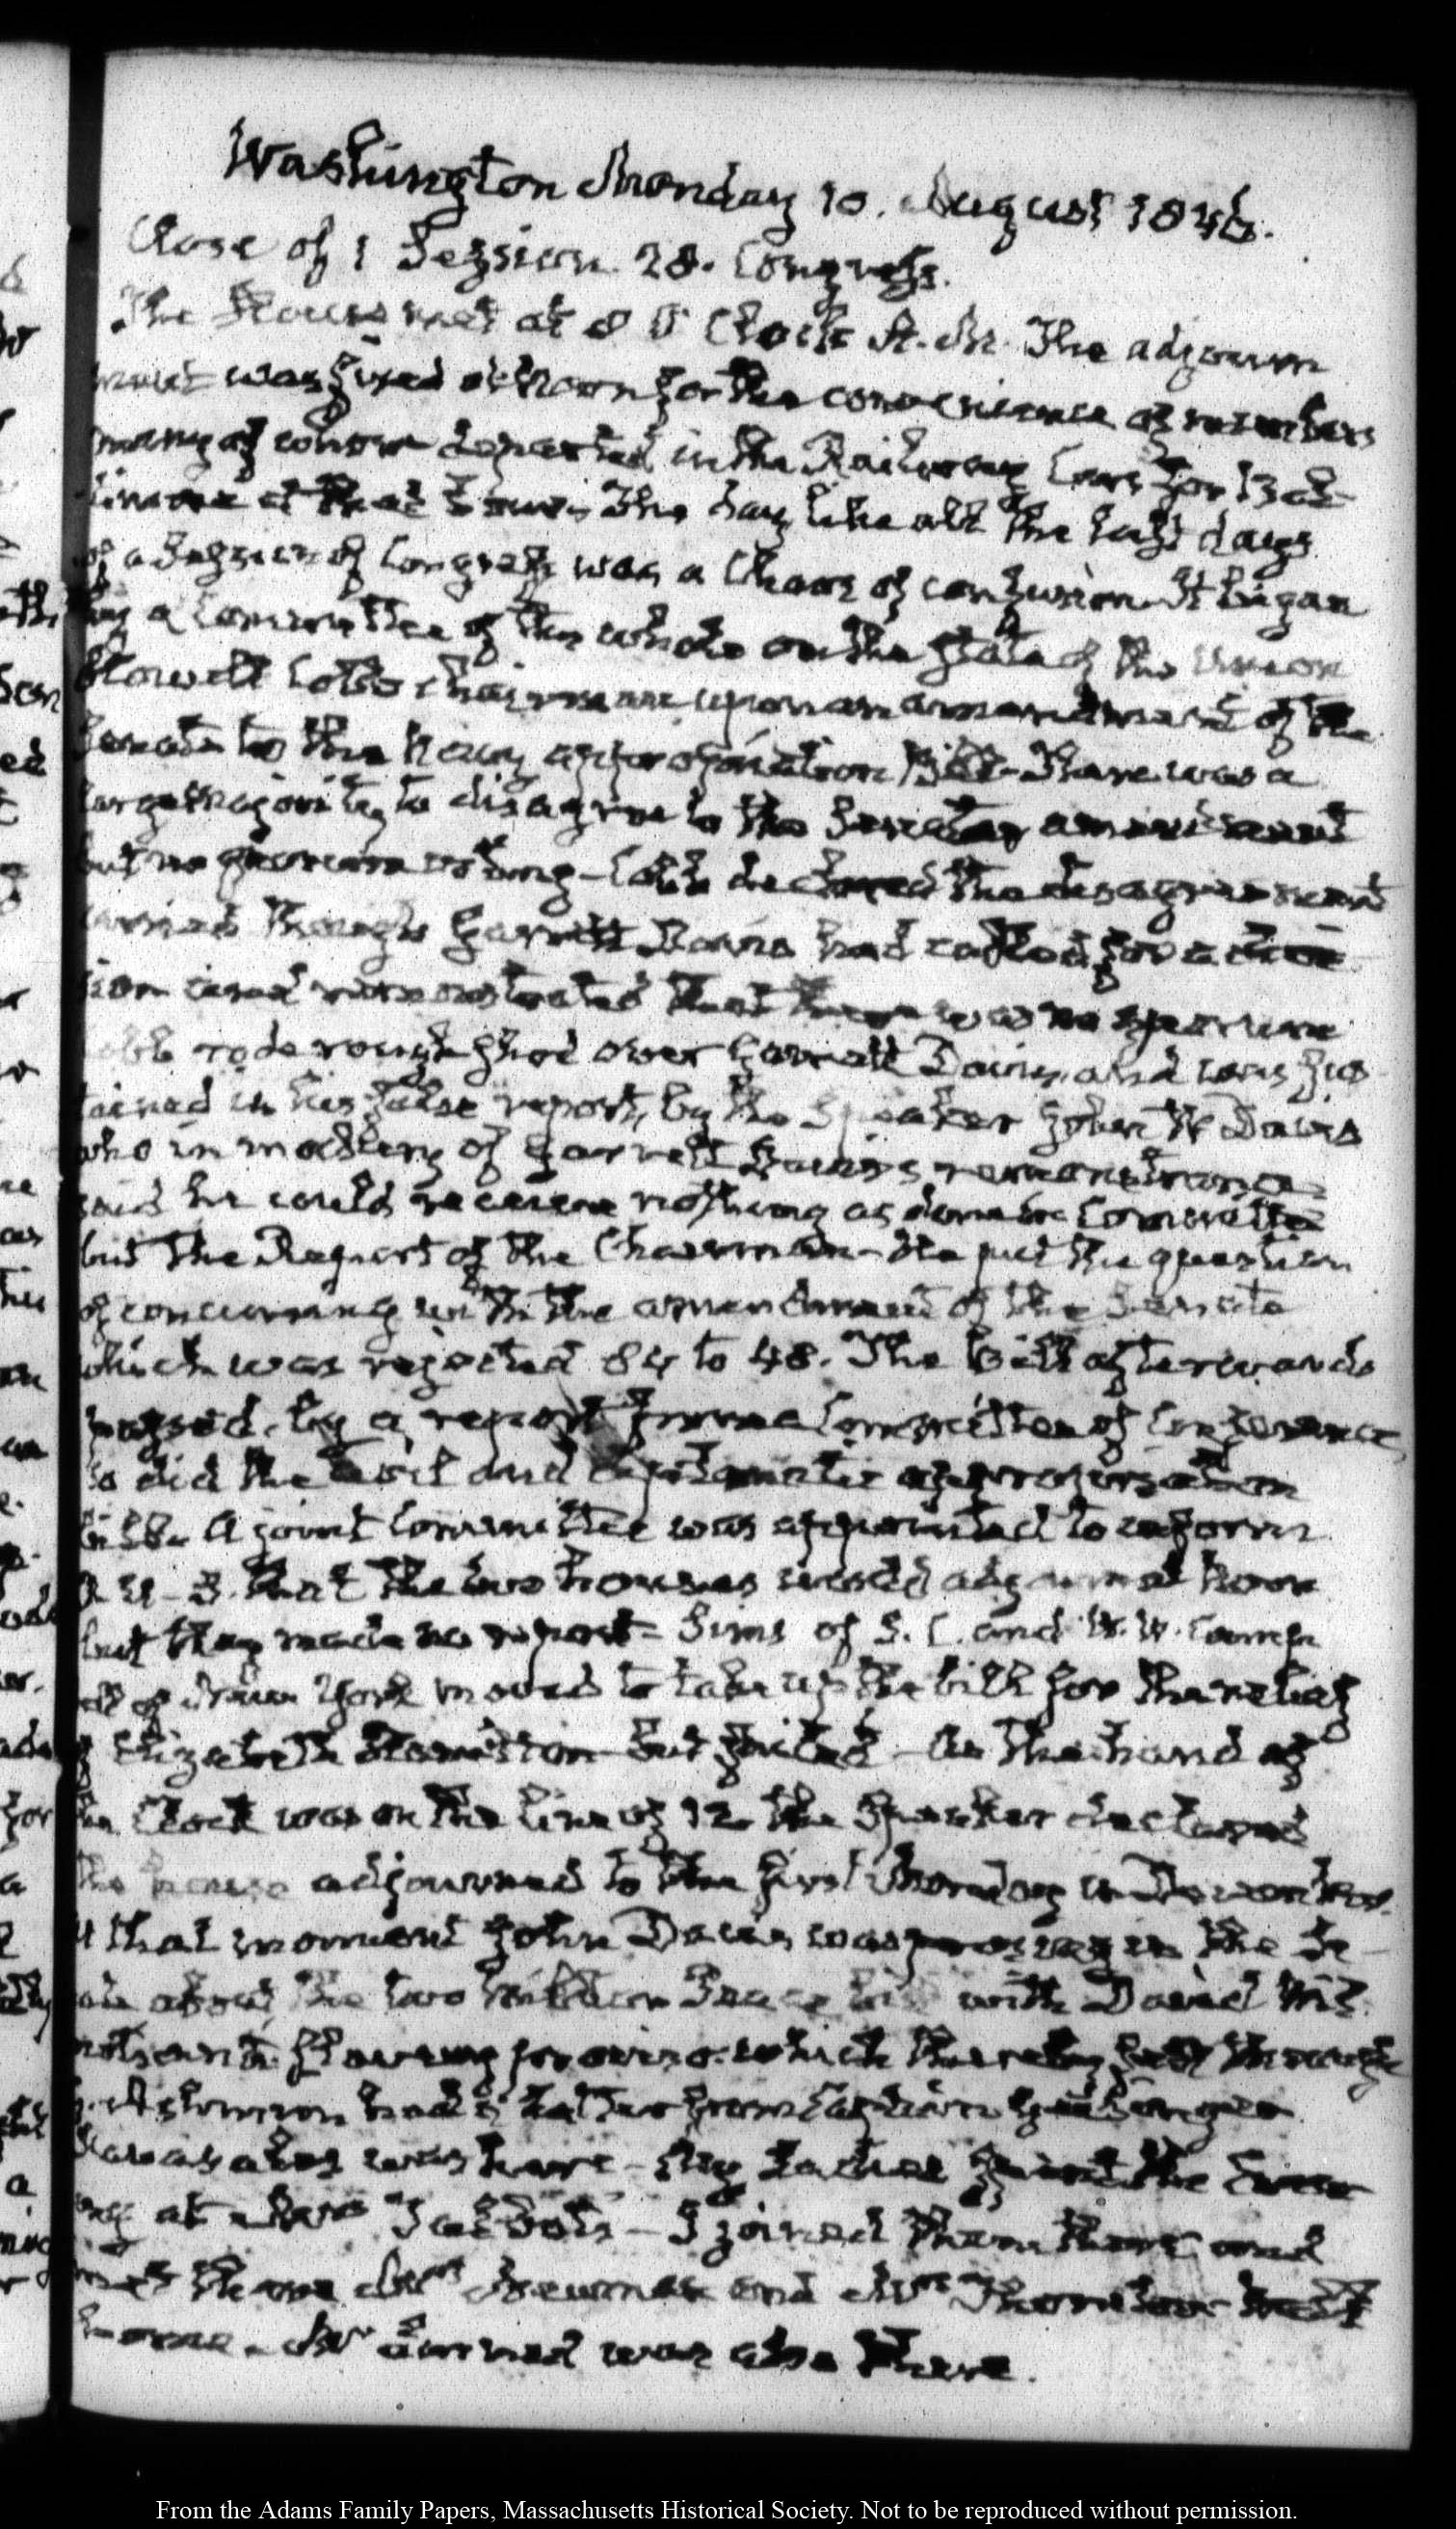 Washington Monday 10. August 1846.
Close of 1 Session. 28. Congress.
The House met at 8 O'Clock A.M. The adjourn
ment was fixed at Noon for the convenience of members
many of whom departed in the Railway Cars for Bal-
timore at that hour. The day, like all the last days
of a Session of Congress was a Chaos of confusion. It began
by a Committee of the whole on the state of the Union
Howell Cobb chairman upon an amendment of the
Senate to the Navy appropriation Bill. There was a
large majority to disagree to the Senate's amendment
but no quorum voting - Cobb declared the disagreement
carried though Garrett Davis had called for a
and remonstrated that there was no quorum
Cobb rode rough shod over Garrett Davis, and was sus
tained in his false report, by the Speaker John W Davis
who in mockery of Garrett Davis's remonstrance
said he could receive nothing as done in Committee
but the Report of the Chairman - He put the question
of concurring with the amendment of the Senate
which was rejected 84 to 48. The Bill afterwards
passed, by a report from a Committee of Conference
so did the Civil and diplomatic appropriation
bill. A joint Committee was appointed to inform
that the two houses would adjourn at Noon
but they made no report - Sims of S. C. and W. W. Camp
ell of New York moved to take up the bill for the relief
of Elizabeth Hamilton but failed - As the hand of
the Clock was on the line of 12 the Speaker declared
the house adjourned to the first Monday in December.
At that moment John Davis was prosing in the Se-
nate about the two Million bill with David Wil
mot's proviso which thereby fell through
Ashmun had a letter from
was here - My Ladies spent the Even
ing at Mrs - I joined them there and
met there Mrs and Mrs Thornton
home. Mr was also there.